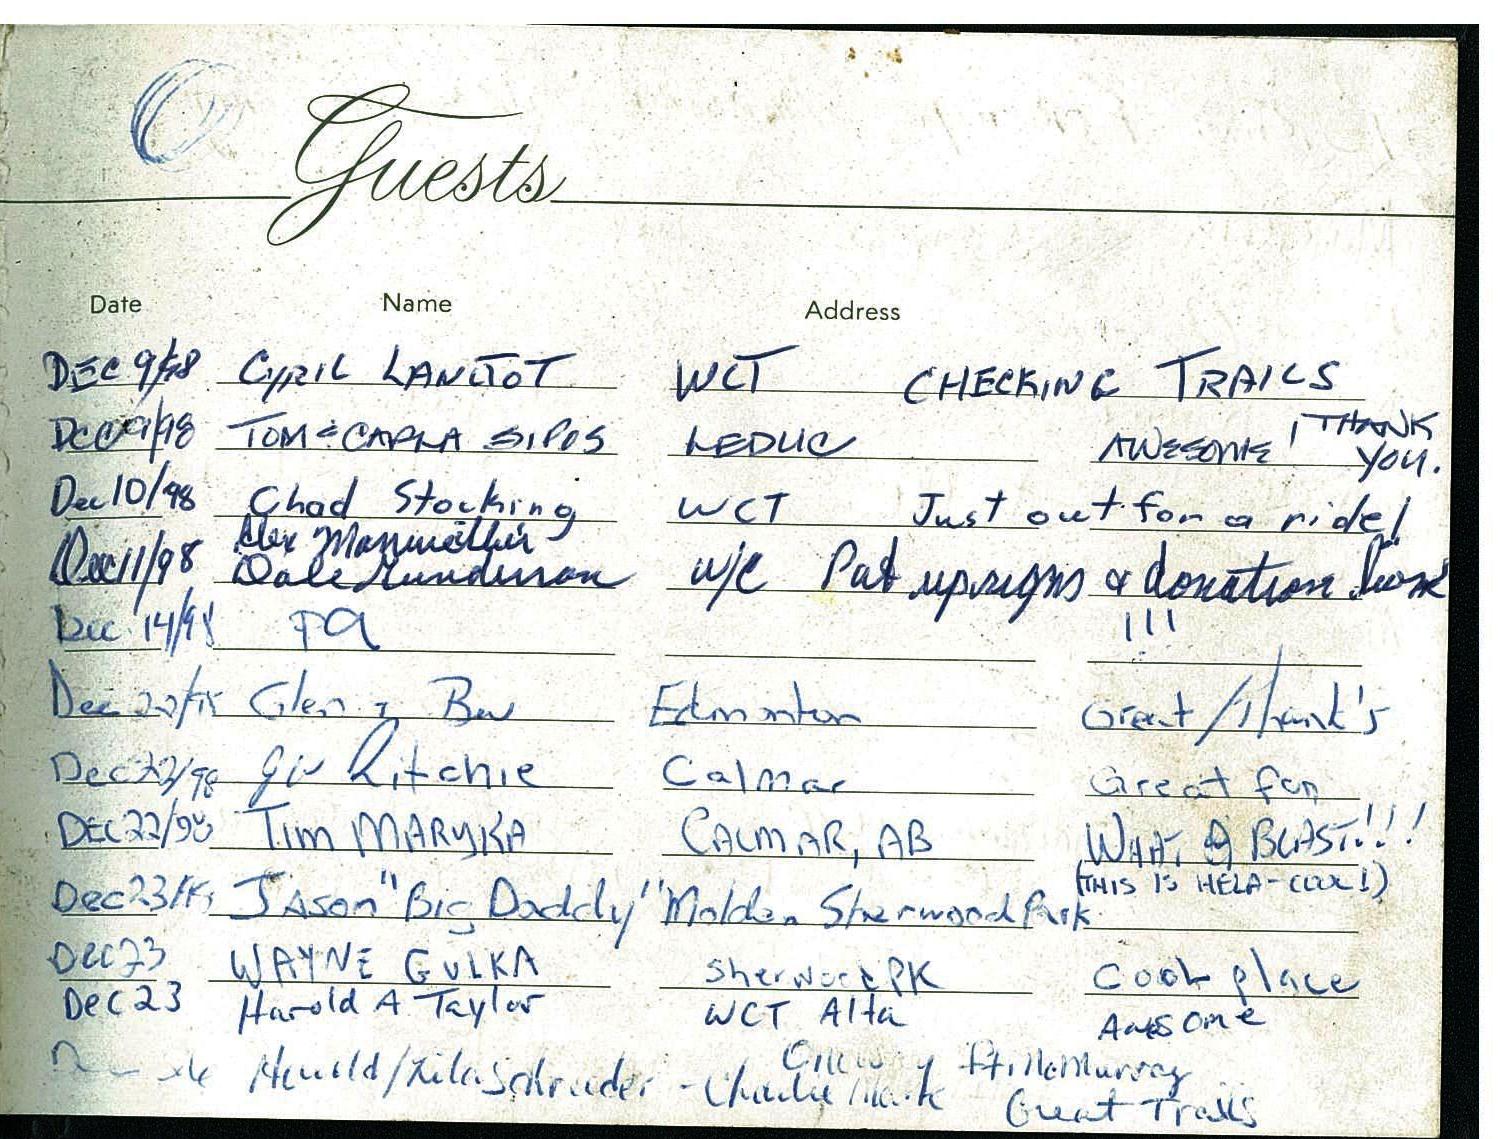 Guests
Date Name Address
DEC 9/98 CYRIL LANCTOT WCT CHECKING TRAILS
Dec 9/98 TOM & CARLA SIPOS LEDUC AWESOME! THANK YOU.
Dec 10/98 Chad Stocking WCT Just out for a ride!
Alex
Dec 11/98 Dale Gunderson W/C Put up signs & donation
Dec. 14/98 !!!
Dec 22/98 Glen & Bev Edmonton Great / Thank's
Dec 22/98 Ritchie Calmar Great fun
DEC 22/98 TIM MARYKA CALMAR, AB WHAT A BLAST!!!
(THIS IS HELA-COOL!)
Dec 23/98 JASon "Big Daddy" Molden Sherwood Park
DEC 23 WAYNE GULKA Sherwood PK Cool place
Dec 23 Harold A Taylor WCT Alta Awesome
Ft. McMurray
Schrader - Charlie Great Trails